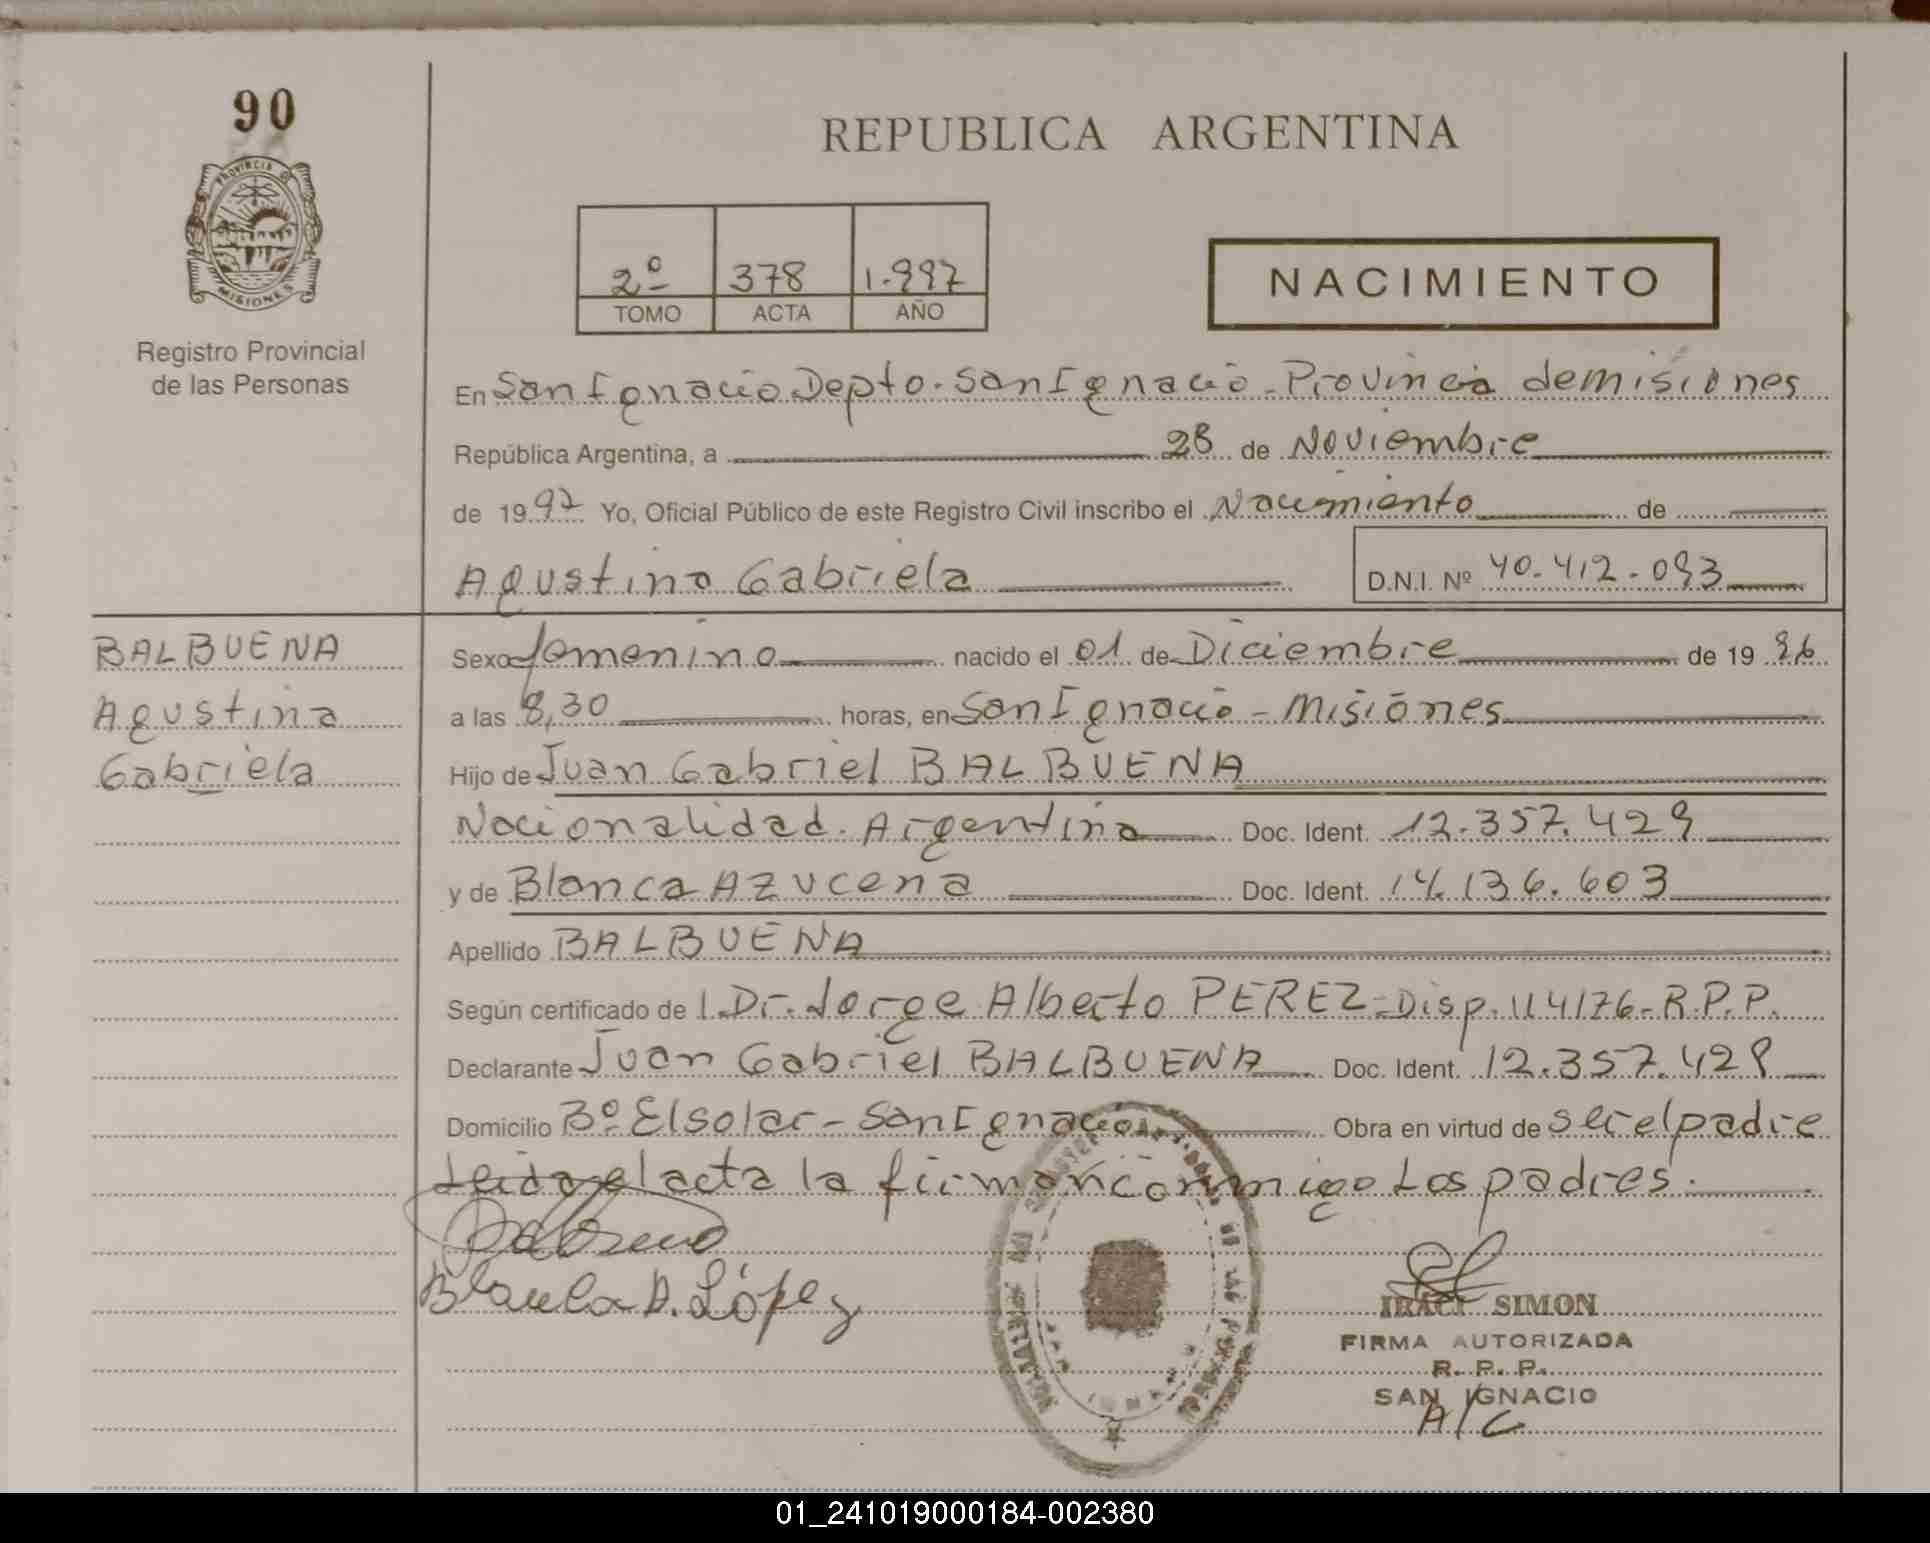 90
PROVINCIA DE
MISIONES
Registro Provincial
de las Personas
REPUBLICA ARGENTINA
2º 378 1.997
TOMO ACTA AÑO
NACIMIENTO
En San Ignacio Depto. San Ignacio - Provincia de misiones
República Argentina, a 28 de Noviembre
de 1997 Yo, Oficial Público de este Registro Civil inscribo el Nacimiento de
Agustina Gabriela D.N.I. Nº 40.412.093
BALBUENA
Agustina
Gabriela
Sexo femenino nacido el 01 de Diciembre de 1996
a las 8,30 horas, en San Ignacio - Misiones
Hijo de Juan Gabriel BALBUENA
Nacionalidad Argentina Doc. Ident. 12.357.429
y de Blanca Azucena Doc. Ident. 14.136.603
Apellido BALBUENA
Según certificado de l Dr. Jorge Alberto PEREZ - Disp. 114/76 - R.P.P.
Declarante Juan Gabriel BALBUENA Doc. Ident. 12.357.429
Domicilio Bº El solar - San Ignacio Obra en virtud de ser el padre
Leida el acta la firman conmigo Los padres.
Balbuena
Blanca A. López
IRACI SIMON
FIRMA AUTORIZADA
R. P. P.
SAN IGNACIO
A/C
01_241019000184-002380